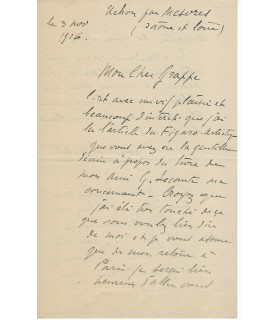 Uchon par Mesvres
le 3 nov (Saône et Loire)
1926.
Mon Cher Grappe
C'est avec un vif plaisir et
beaucoup d'intérêt que j'ai
lu l'article du Figaro-Artistique
que vous avez eu la gentillesse
d'écrire à propos du livre de
mon ami G. Lecomte me
concernant - Croyez que
j'ai été très touché de ce
que vous voulez bien dire
de moi et je vous assure
que dès mon retour à
Paris je serai bien
heureux d'aller vous